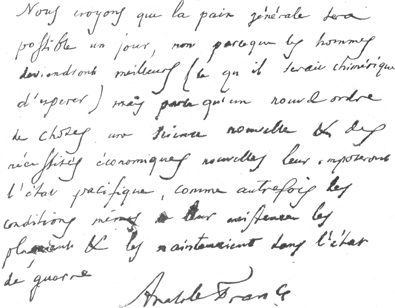 Nous croyons que la paix générale sera
possible un jour, non parce que les hommes
deviendront meilleurs (ce qu'il serait chimérique
d'espérer) mais parce qu'un nouvel ordre
de choses une science nouvelle & des
nécessités économiques nouvelles leur imposeront
l'état pacifique, comme autrefois les
conditions mêmes de leur existence les
plaçaient & les maintenaient dans l'état
de guerre
Anatole France